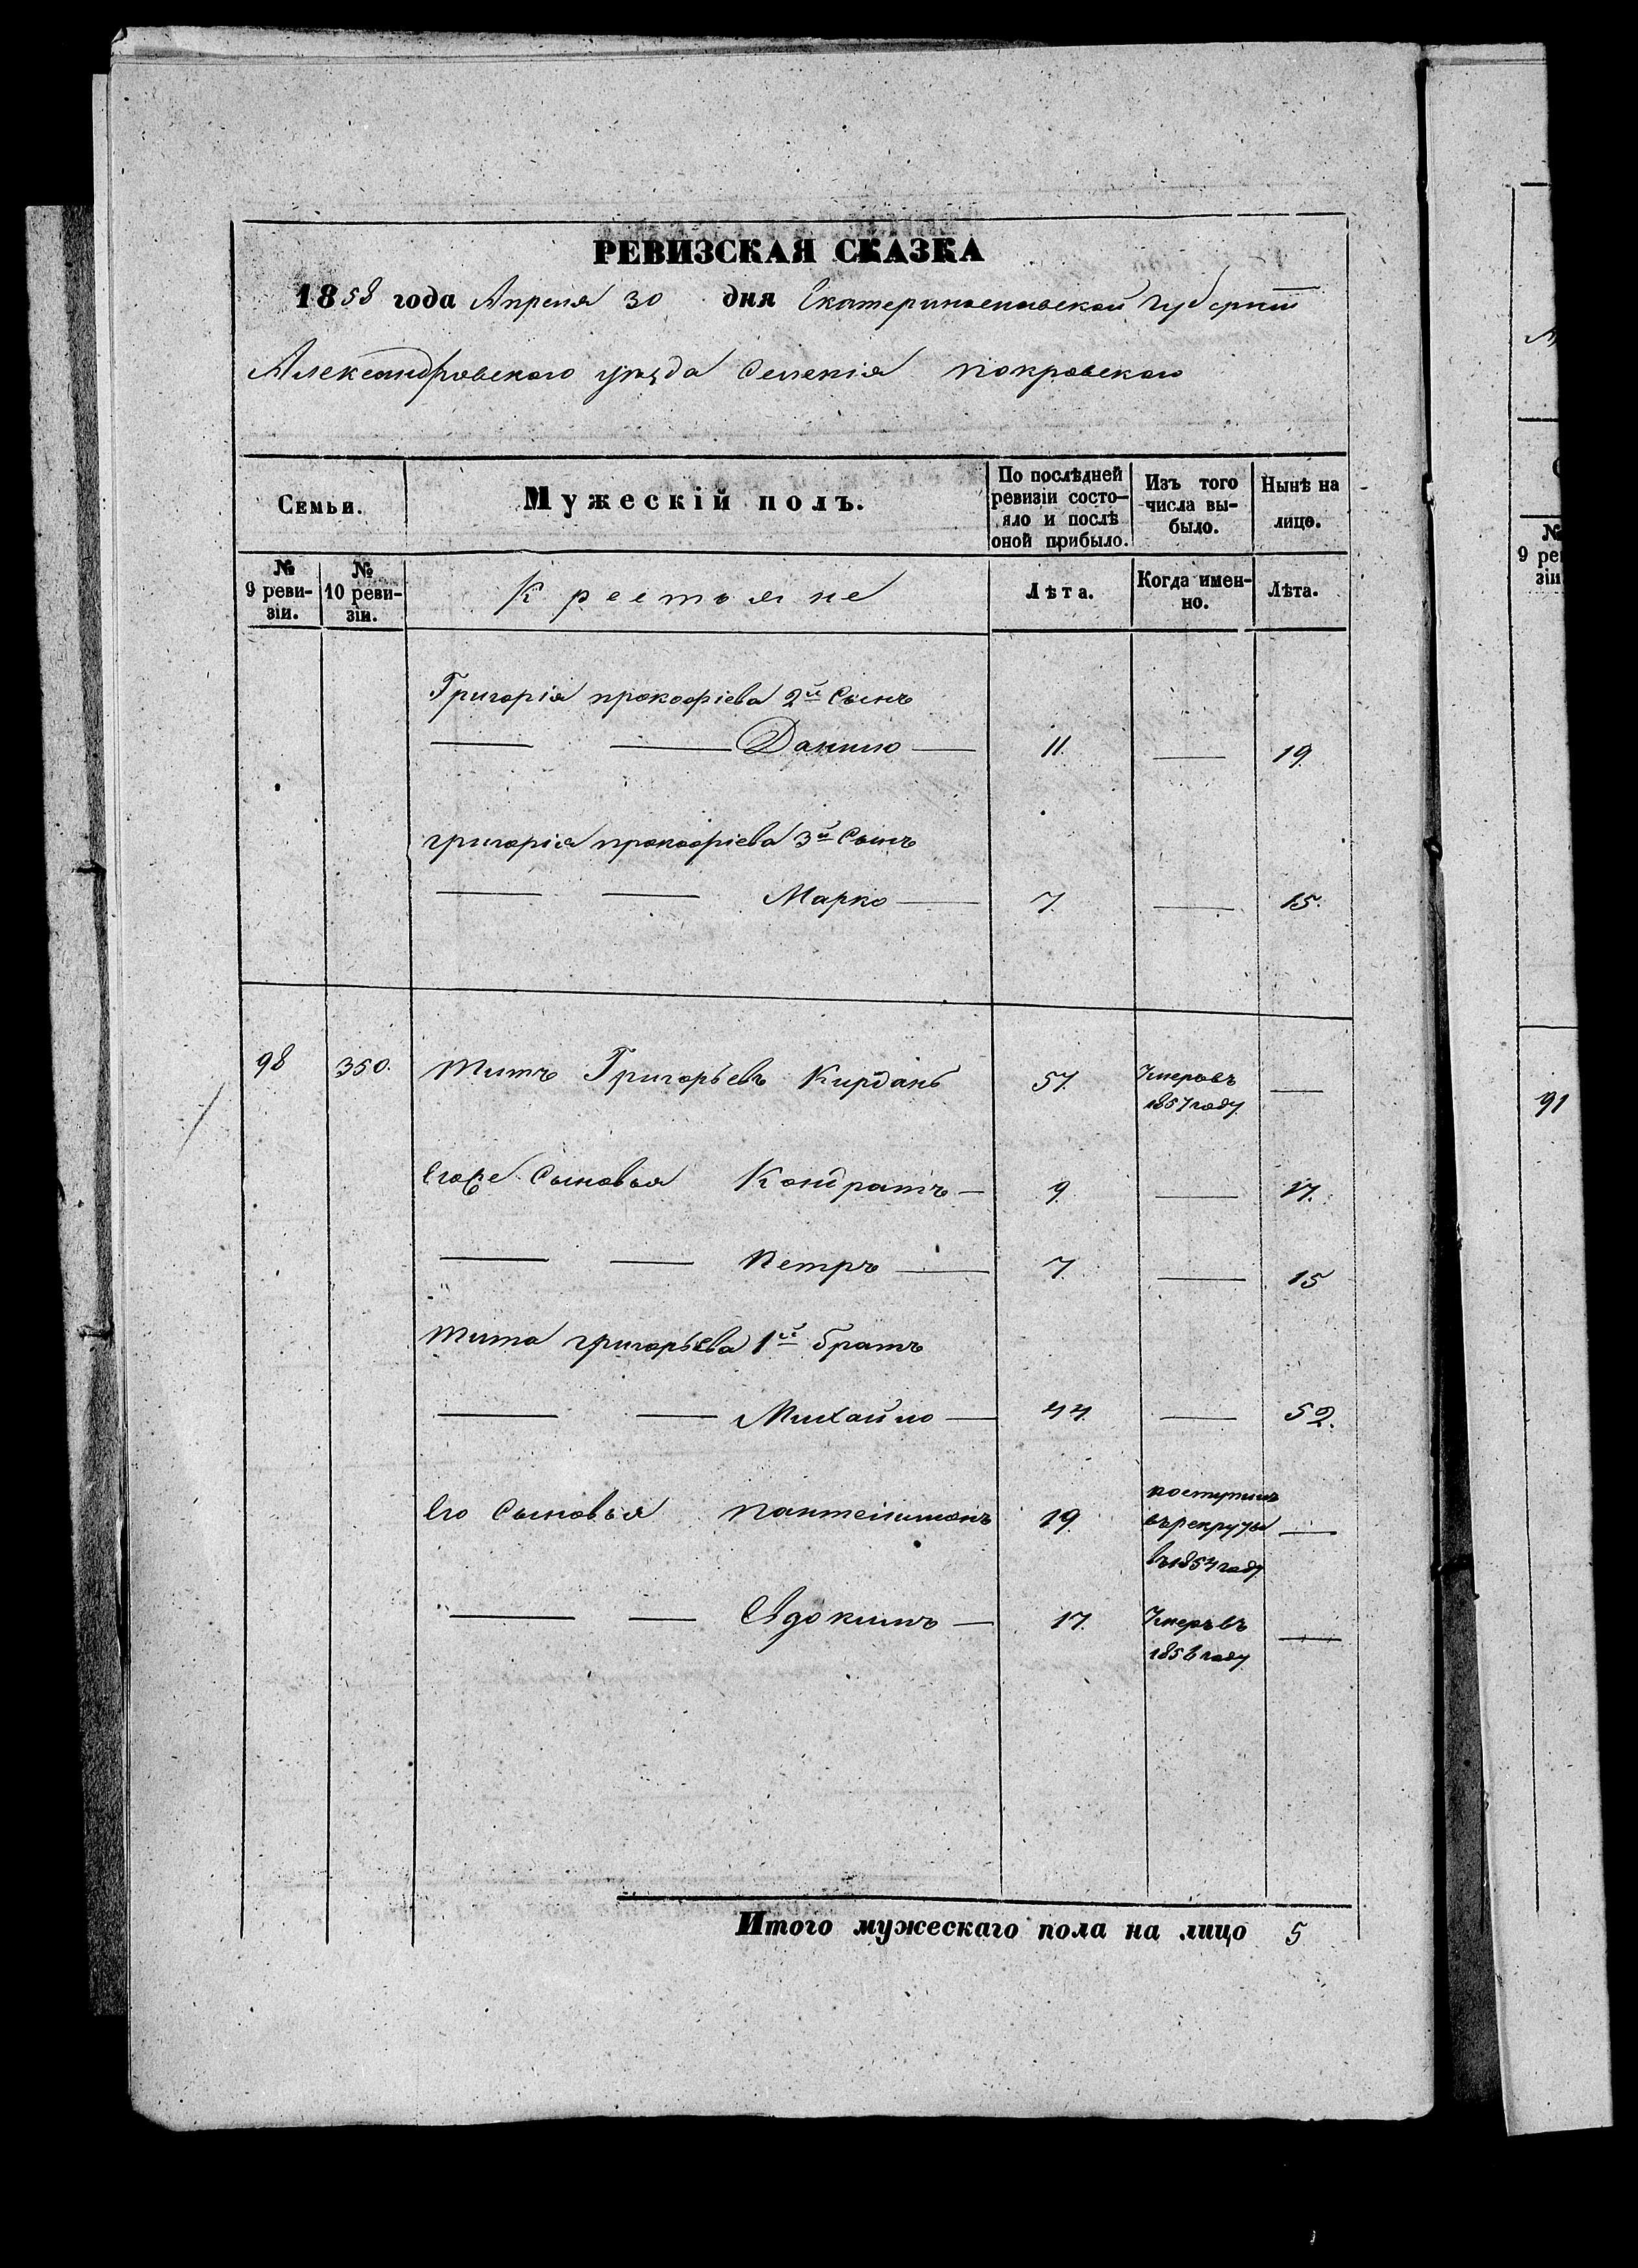 РЕВИЗСКАЯ СКАЗКА
1858 года Апреля 30 дня Екатеринославской губернiи
Александровского уѣзда Селенiя покровского
Семьи.
Мужескiй полъ.
По послѣдней ревизiи состо-яло и послѣ оной прибыло.
Изъ того числа вы-было.
Нынѣ на лицо.
№ 9 реви-зiи.
№ 10 реви-зiи.
Крестьяне
Лѣта.
Когда имен-но.
Лѣта.
Григорiя прокофiева 2й Сынъ
Данило 11. 19.
григорiя прокофiева 3й Сынъ
Марко 7. 15.
98 350. Титъ Григорьевъ Кирданъ 57. Умеръ въ —
1857 году
Его Сыновья Кондратъ 9. — 17.
Петръ 7. — 15
Тита григорьева 1й братъ
Михайло 44. — 52.
Его Сыновья пантелимонъ 19. поступилъ
въ рекруты —
въ 1854 году
Авдокимъ 17. Умеръ въ —
1856 году
Итого мужескаго пола на лицо 5
№
9 реви
зiи
91